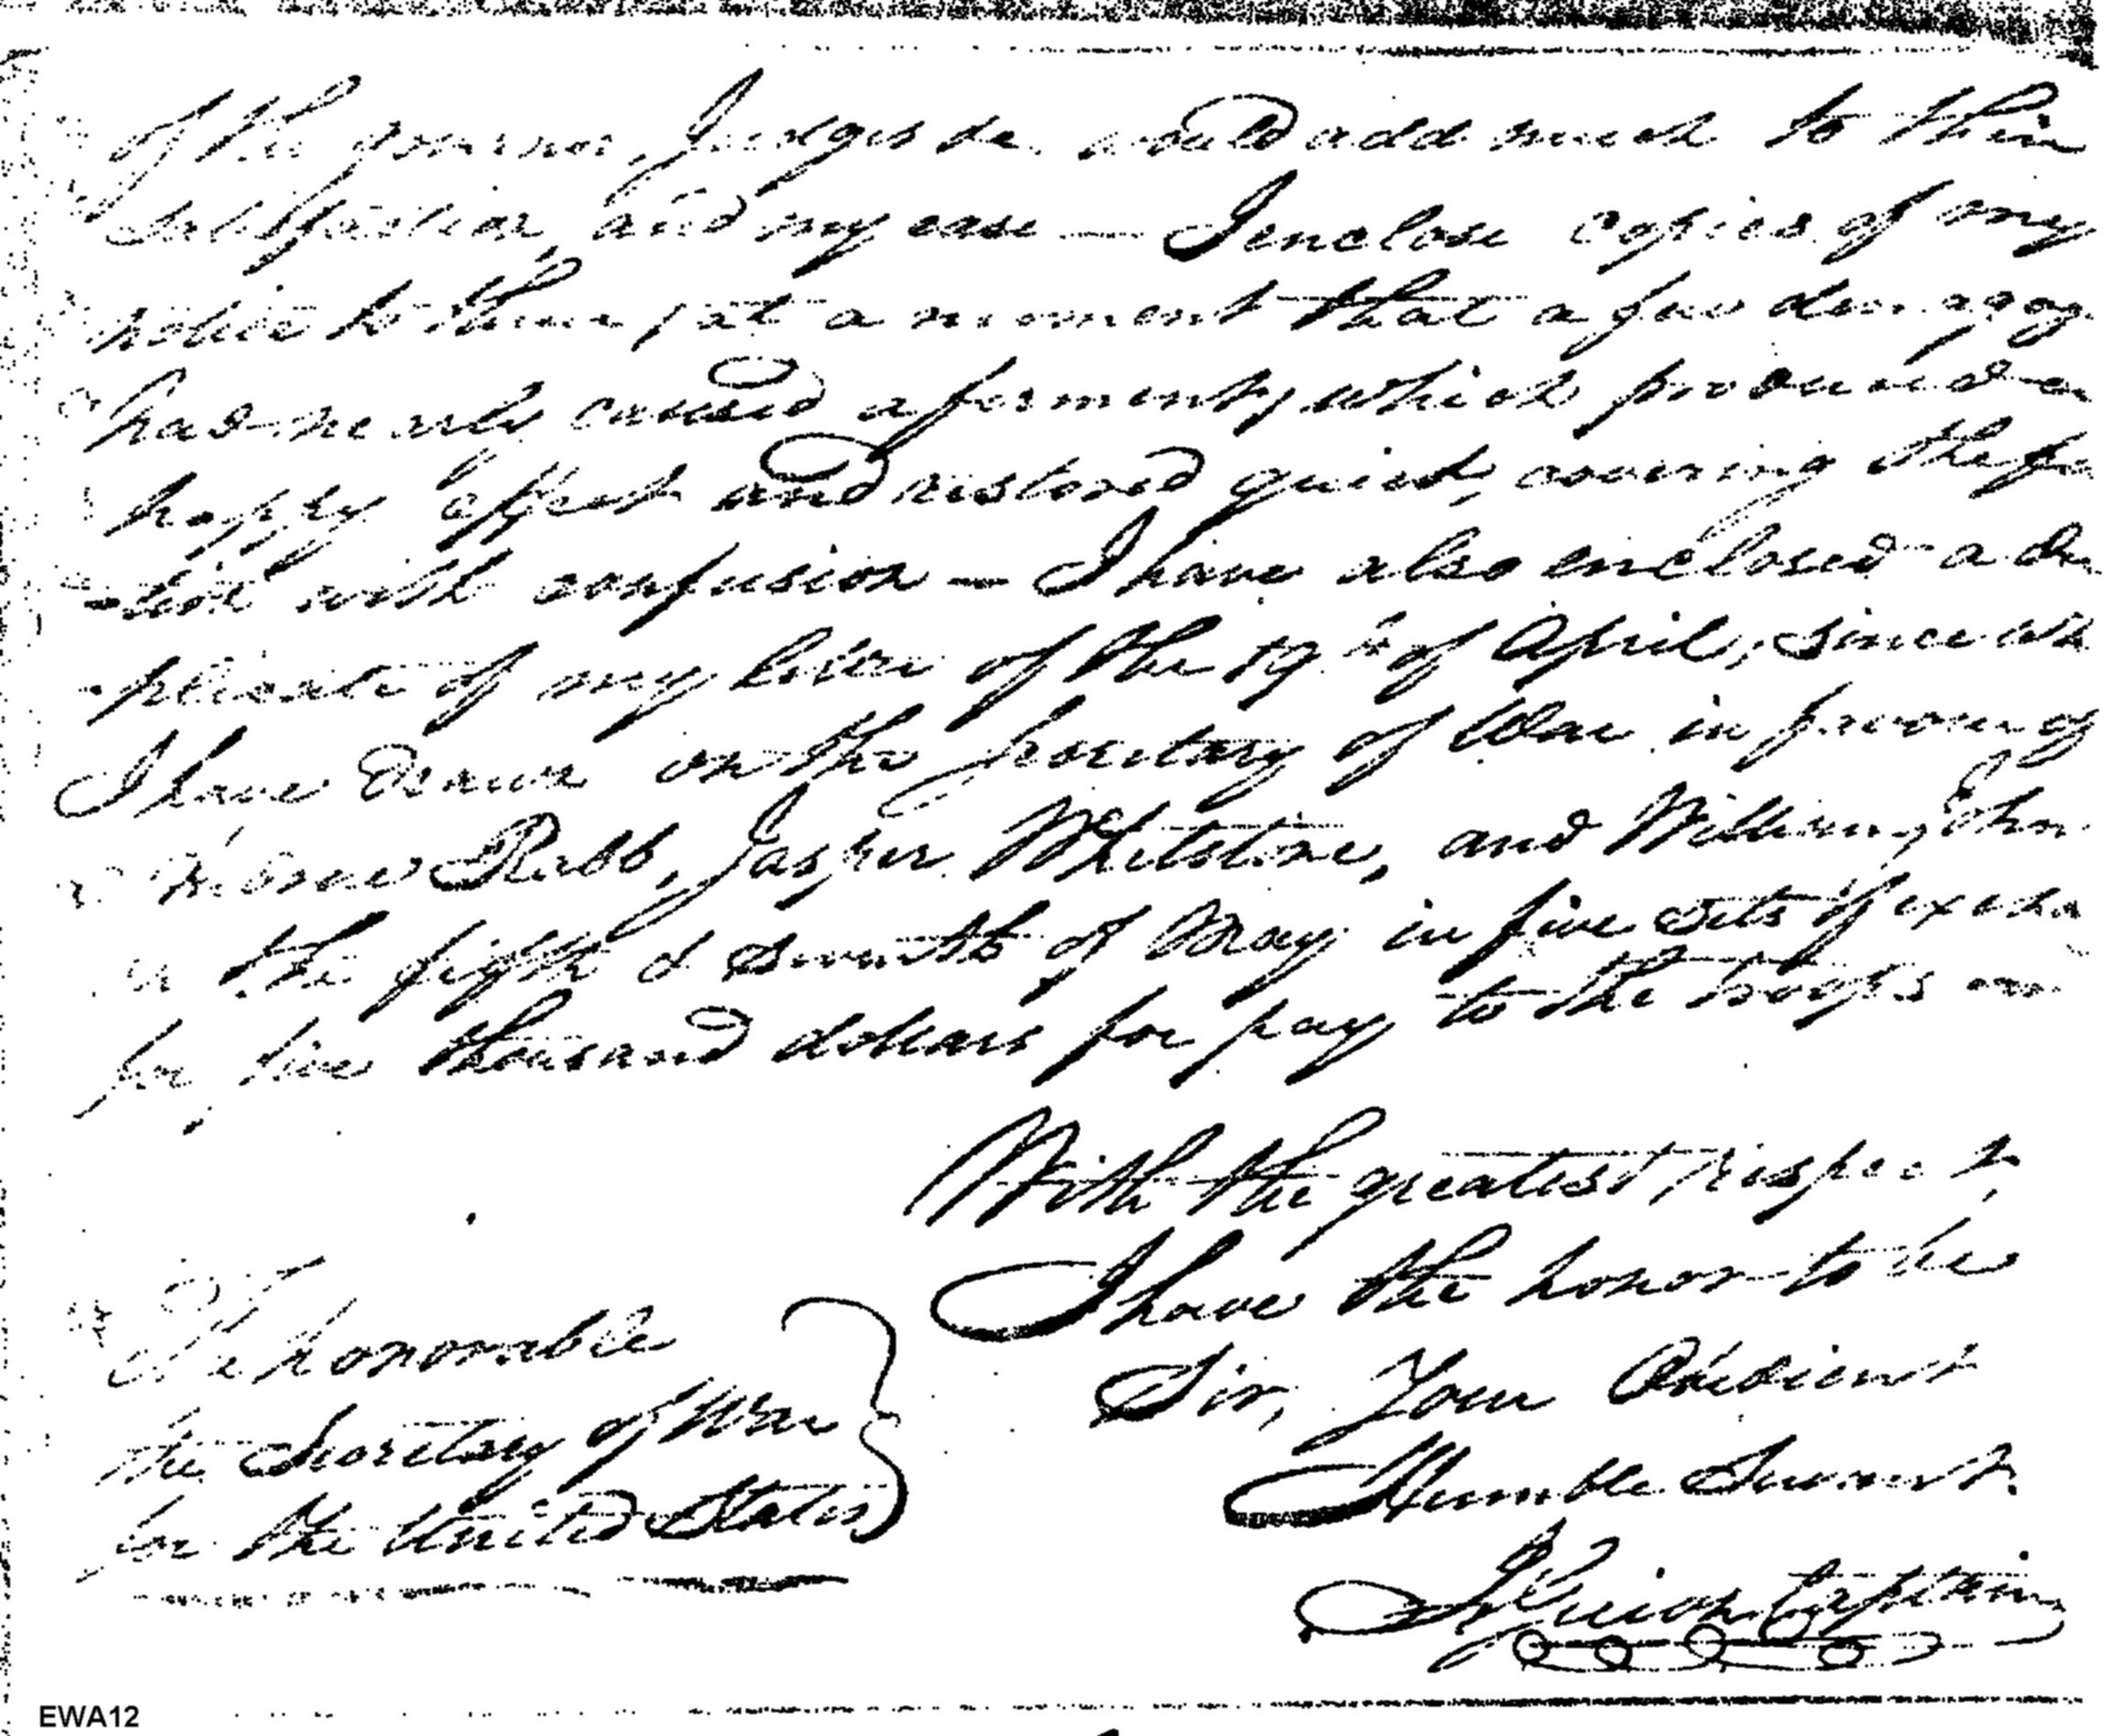 of the governor, Judges &c. would add much to their
satisfaction, and my ease — I enclose copies of my
notice to them, at a moment that a few demagog
had nearly caused a ferment, which produced a
happy effect and restored quiet, covering the fa
-tion with confusion — I have also enclosed a du
-plicate of my letter of the 19th of April, since wh
I have drawn on the Secretary of War in favour of
Andrew Rabb, Jasper Whetstone, and William John
the fifth & seventh of May in five sets of excha
for five thousand dollars for pay to the troops
With the greatest respect,
I have the honor to be
Sir, Your Obedient
Humble Servant.
Captain
The honorable
the Secretary of War
for the United States
EWA12